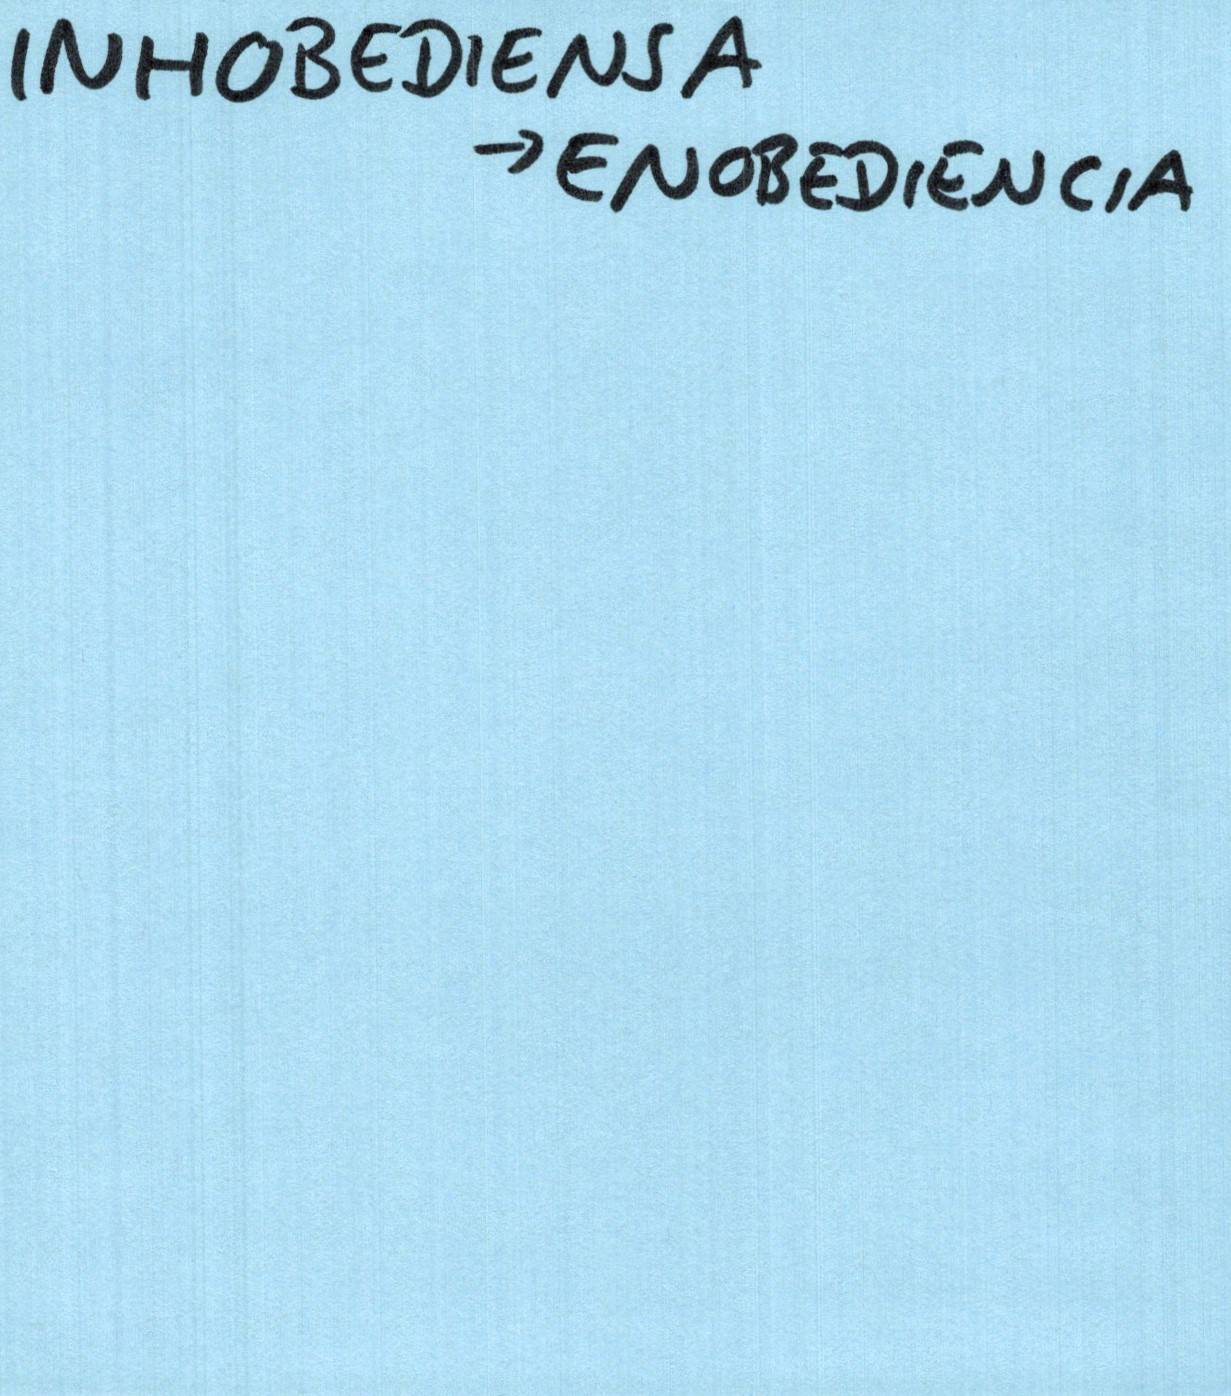 INHOBEDIENSA
→ ENOBEDIENCIA